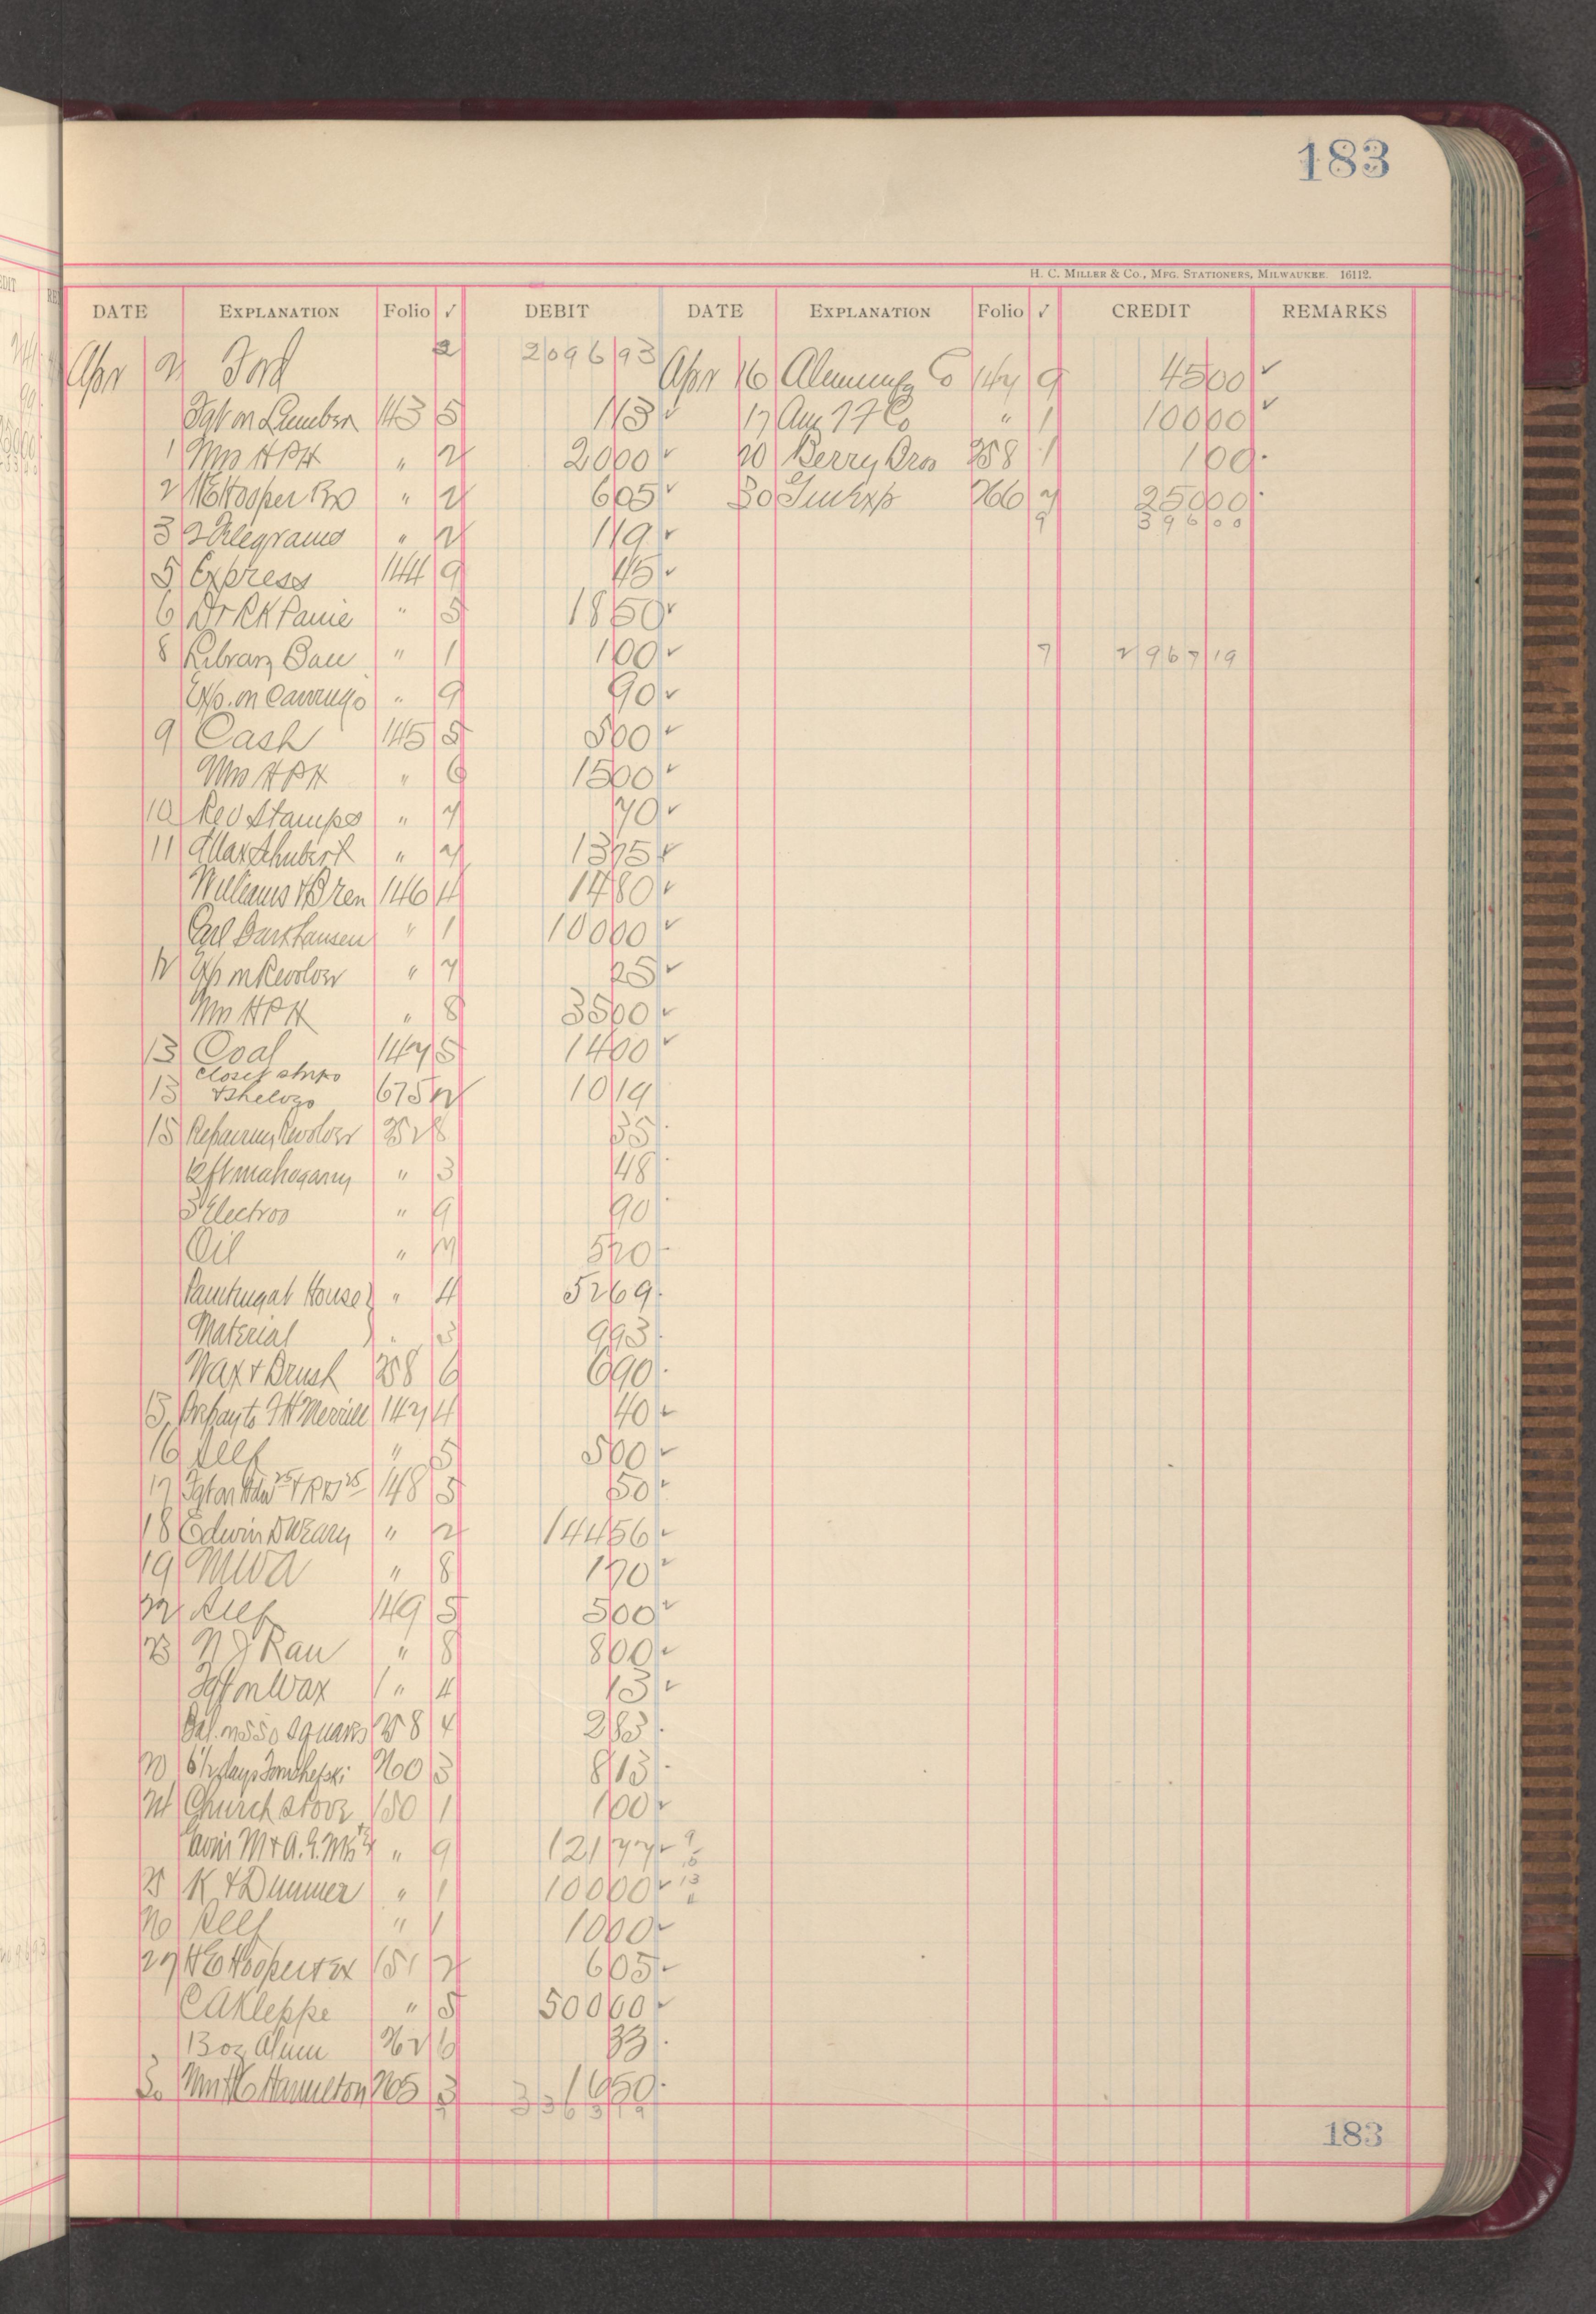 183
H. C. Miller & Co., Mfg. Stationers, Milwaukee. 16112.
DATE Explanation Folio √ DEBIT DATE Explanation Folio √ CREDIT REMARKS
Apr Ford 2 2096 93 Apr 16 Co 147 9 45 00 ✓
Fgt on Lumber 143 5 1 13 ✓ 17 Co " 1 100 00 ✓
1 Mrs HPH " 2 20 00 ✓ 20 Berry Bros 258 1 1 00
2 HE Hooper " 2 6 05 ✓ 30 Exp 266 7 250 00
3 2 Telegrams " 2 1 19 ✓ 9 396 00
5 Express 144 9 45 ✓
6 Dr RK Paine " 5 18 50 ✓
8 Library " 1 1 00 ✓ 7 2967 19
Exp. on " 9 90 ✓
9 Cash 145 5 5 00 ✓
Mrs HPH " 6 15 00 ✓
10 Rev Stamps " 7 70 ✓
11 Max Schubert " 7 13 75 ✓
Williams 146 4 14 80 ✓
Carl Barkhausen " 1 100 00 ✓
12 Exp on Revolver " 7 25 ✓
Mrs HPH " 8 35 00 ✓
13 Coal 147 5 14 00 ✓
Closet strips
13 & Shelves 675 2 10 19
15 Repairing Revolver 252 8 35
12 ft mahogany " 3 48
3 Electros " 9 90
Oil " 7 5 20
House } " 4 52 69
Material } " 3 9 93
Wax & Brush 258 6 6 90
15 Prepay to FH Merrill 147 4 40 ✓
16 Self " 5 5 00 ✓
17 Fgt on 148 5 50 ✓
18 Edwin D Weary " 2 144 56 ✓
19 MWA " 8 1 70 ✓
22 Self 149 5 5 00 ✓
23 Rau " 8 8 00 ✓
Fgt on Wax " 4 13 ✓
550 squares 258 4 2 83
20 6½ days 260 3 8 13
24 Church stove 150 1 1 00 ✓
" 9 121 77 ✓
25 K & Dummer " 1 100 00 ✓
26 Self " 1 10 00 ✓
27 HE Hooper 151 2 6 05 ✓
CA Kleppe " 5 500 00 ✓
13 oz Alum 262 6 33
30 Hamilton 265 3 16 50
3363 19
183